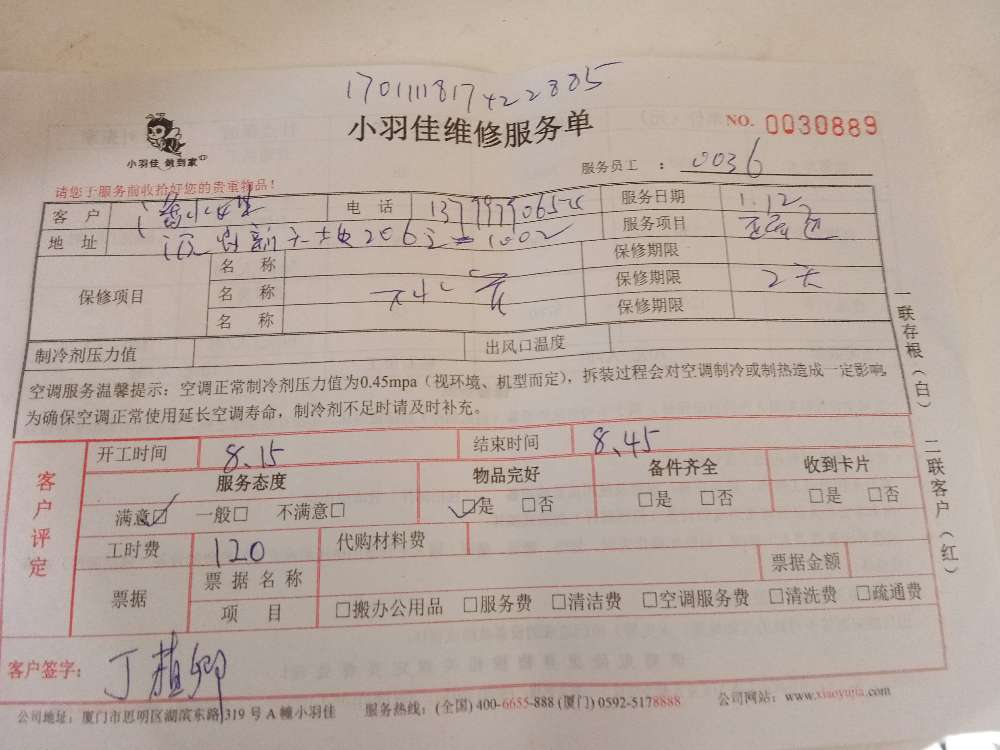 1701111817422885
小羽佳维修服务单
NO. 0030889
小羽佳 做到家
服务员工 : 0036
请您于服务前收拾好您的贵重物品!
客 户 电 话 服务日期 1.12
地 址 服务项目
保修项目
名 称 保修期限
名 称 保修期限 2天
名 称 保修期限
制冷剂压力值 出风口温度
空调服务温馨提示：空调正常制冷剂压力值为0.45mpa（视环境、机型而定），拆装过程会对空调制冷或制热造成一定影响,
为确保空调正常使用延长空调寿命，制冷剂不足时请及时补充。
一联存根（白） 二联客户（红）
客户评定
开工时间 8.15 结束时间 8.45
服务态度 物品完好 备件齐全 收到卡片
满意☑ 一般□ 不满意□ ☑是 □否 □是 □否 □是 □否
工时费 120 代购材料费
票据 票 据 名 称 票据金额
项 目 □搬办公用品 □服务费 □清洁费 □空调服务费 □清洗费 □疏通费
客户签字: 丁植卿
公司地址：厦门市思明区湖滨东路319号A幢小羽佳 服务热线：(全国) 400-6655-888 (厦门) 0592-5178888 公司网站：www.xiaoyujia.com